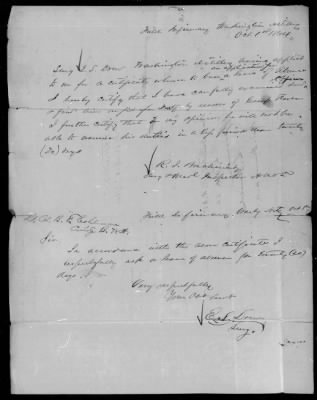 Field Infirmary Washington Artillery
Oct 1st 1864
Surg E. S. Drew Washington Artillery having applied
to me for a certificate whereon to base a leave of absence
I hereby certify that I have carefully examined this
officer and unfit for duty by reason of Fever
I further certify that in my opinion he will not be
able to resume his duties in a less period than twenty
(20) days
Surg & Med Inspector A.N.V.
Field Infirmary Wash Arty Oct 1st
Sir
In accordance with the above certificate I
respectfully ask a leave of absence for twenty (20)
days
Very respectfully
Your Obt Servt
E. S. Drew
Surg.